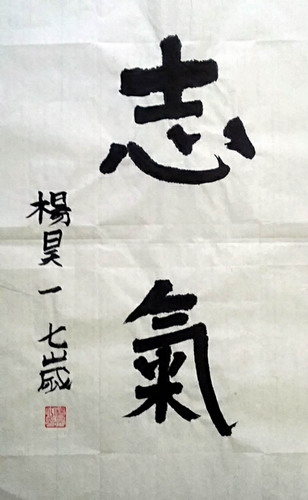 志氣
楊昊一 七歲